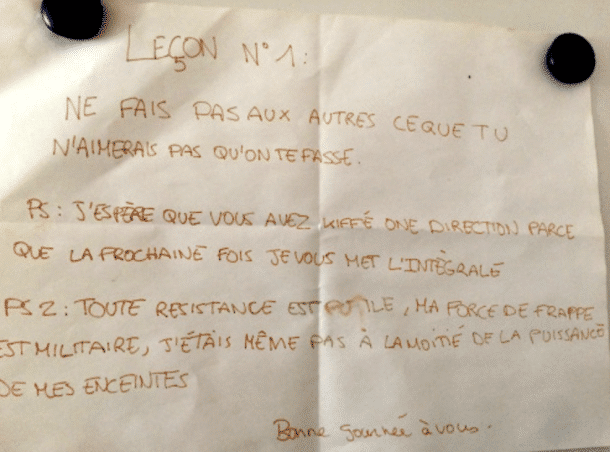 LEÇON N°1:
NE FAIS PAS AUX AUTRES CE QUE TU
N'AIMERAIS PAS QU'ON TE FASSE.
PS: J'ESPÈRE QUE VOUS AVEZ KIFFÉ ONE DIRECTION PARCE
QUE LA PROCHAINE FOIS JE VOUS MET L'INTÈGRALE
PS 2: TOUTE RESISTANCE EST FUTILE, MA FORCE DE FRAPPE
EST MILITAIRE, J'ÉTAIS MÊME PAS À LA MOITIÉ DE LA PUISSANCE
DE MES ENCEINTES
Bonne journée à vous.